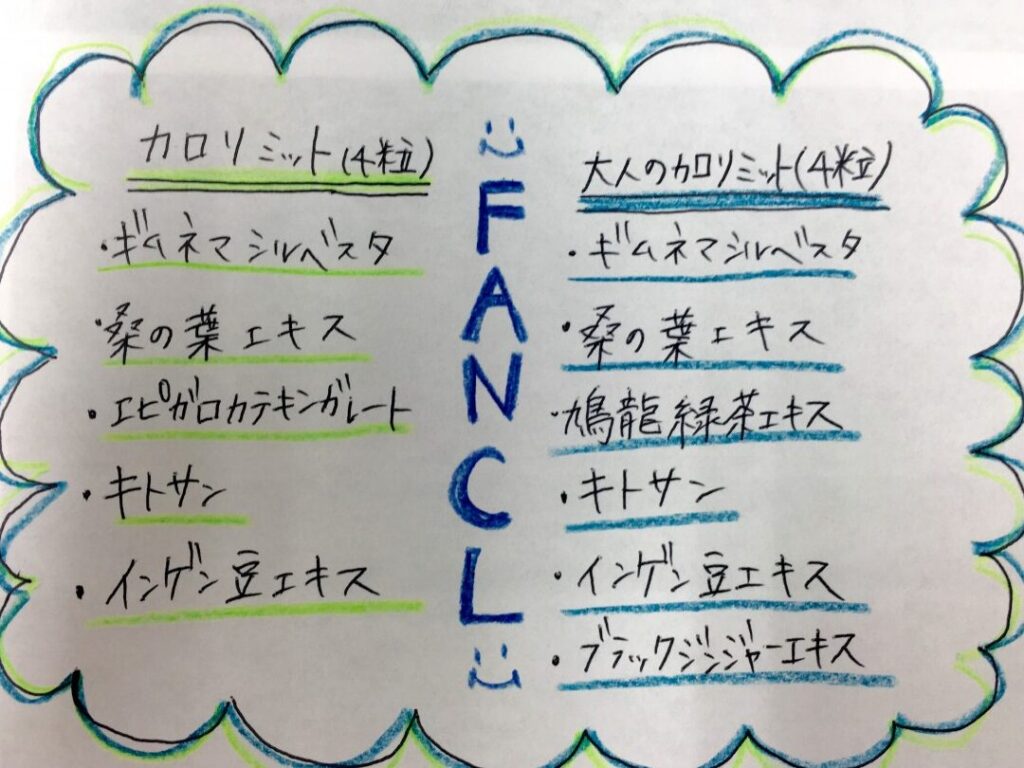 カロリミット(4粒)
・ギムネマシルベスタ
・桑の葉エキス
・エピガロカテキンガレート
・キトサン
・インゲン豆エキス
FANCL
大人のカロリミット(4粒)
・ギムネマシルベスタ
・桑の葉エキス
・鳩龍緑茶エキス
・キトサン
・インゲン豆エキス
・ブラックジンジャーエキス